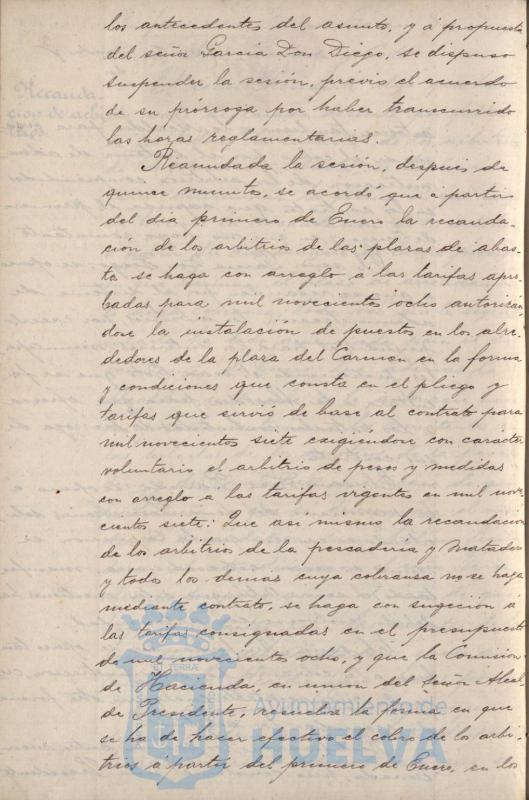 los antecedentes del asunto, y á propuesta
del señor Garcia Don Diego, se dispuso
suspender la sesión, previo el acuerdo
de su prórroga por haber transcurrido
las horas reglamentarias.
Reanudada la sesión, después de
quince minutos, se acordó que a partir
del dia primero de Enero la recauda-
ción de los arbitrios de las plazas de abas-
to se haga con arreglo á las tarifas apro-
badas para mil novecientos ocho autorizan-
dose la instalación de puestos en los alre-
dedores de la plaza del Carmen en la forma
y condiciones que consta en el pliego y
tarifas que sirvió de base al contrato para
mil novecientos siete exigiéndose con carácter
voluntario el arbitrio de pesos y medidas
con arreglo a las tarifas vigentes en mil nove
cientos siete: Que asi mismo la recaudación
de los arbitrios de la pescaderia y Matadero
y todos los demás cuya cobransa no se haga
mediante contrato, se haga con sugeción a
las tarifas consignadas en el presupuesto
de mil novecientos ocho, y que la Comision
de Hacienda, en union del señor Alcal
de Presidente, resuelva la forma en que
se ha de hacer efectivo el cobro de los arbi-
trios á partir del primero de Enero, en los
Ayuntamiento de
HUELVA